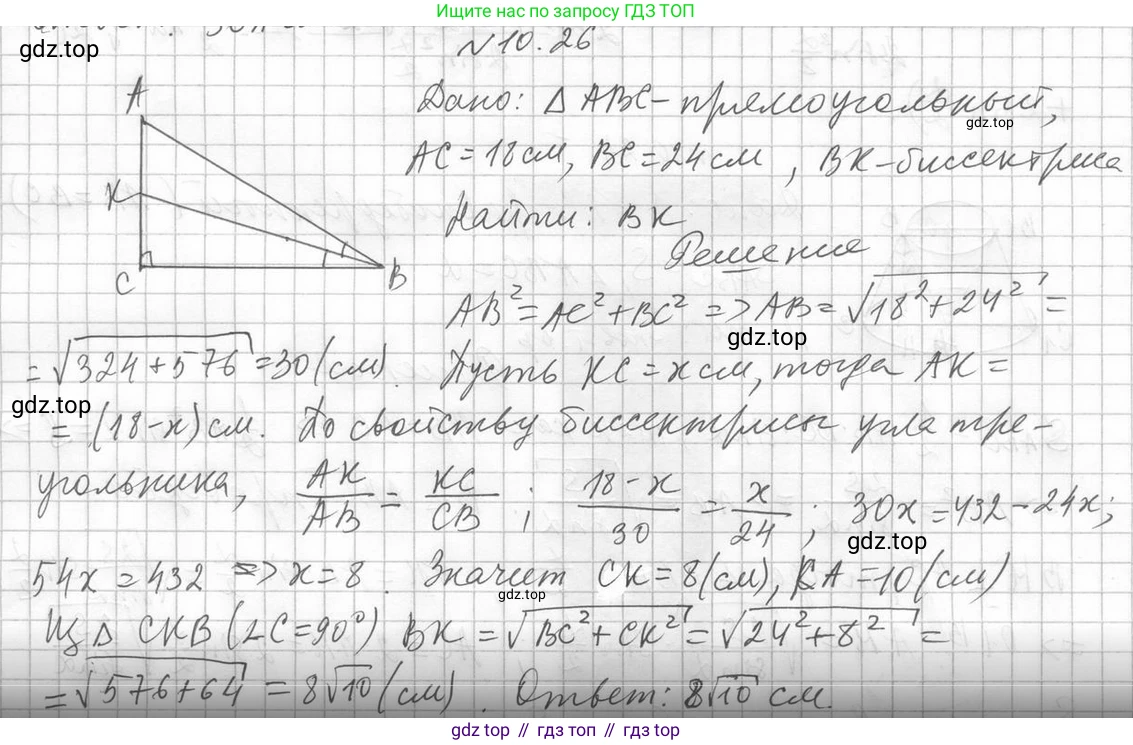 Ищите нас по запросу ГДЗ ТОП
gdz.top
№10.26
A
K
C
B
Дано: △ ABC - прямоугольный,
gdz.top
AC = 18 см, BC = 24 см, BK - биссектриса
Найти: BK
Решение
AB² = AC² + BC² => AB = √(18² + 24²) =
gdz.top
= √(324 + 576) = 30 (см). Пусть KC = x см, тогда AK =
gdz.top
= (18 - x) см. По свойству биссектрисы угла тре-
угольника, AK/AB = KC/CB ; (18 - x)/30 = x/24 ; 30x = 432 - 24x;
gdz.top
54x = 432 => x = 8. Значит CK = 8 (см), KA = 10 (см)
gdz.top
Из △ CKB (∠C = 90°) BK = √(BC² + CK²) = √(24² + 8²) =
= √(576 + 64) = 8√10 (см). Ответ: 8√10 см.
gdz.top // гдз топ // gdz.top